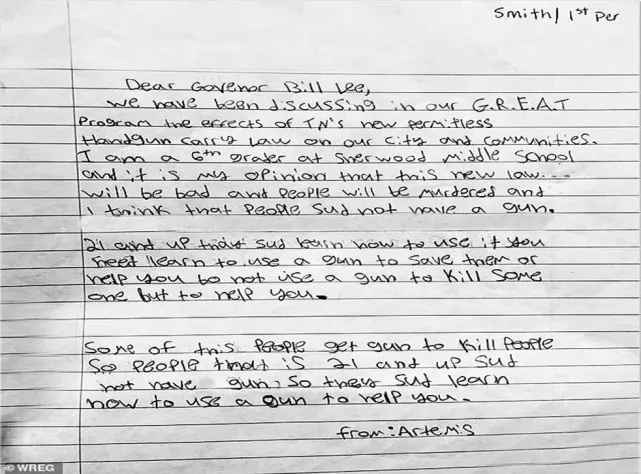 Smith/ 1st Per
Dear Govenor Bill Lee,
We have been discussing in our G.R.E.A.T
Program the effects of TN's new permitless
Handgun carry law on our city and communities.
I am a 6th grader at Sherwood Middle School
and it is my opinion that this new law...
will be bad and People will be murdered and
I think that People Sud not have a gun.
21 and up thay sud learn how to use it you
need learn to use a gun to save them or
help you to not use a gun to kill some
one but to help you.
Some of this People get gun to kill People
So People that is 21 and up Sud
not have gun, So they Sud learn
how to use a gun to help you.
from: Artemis
© WREG